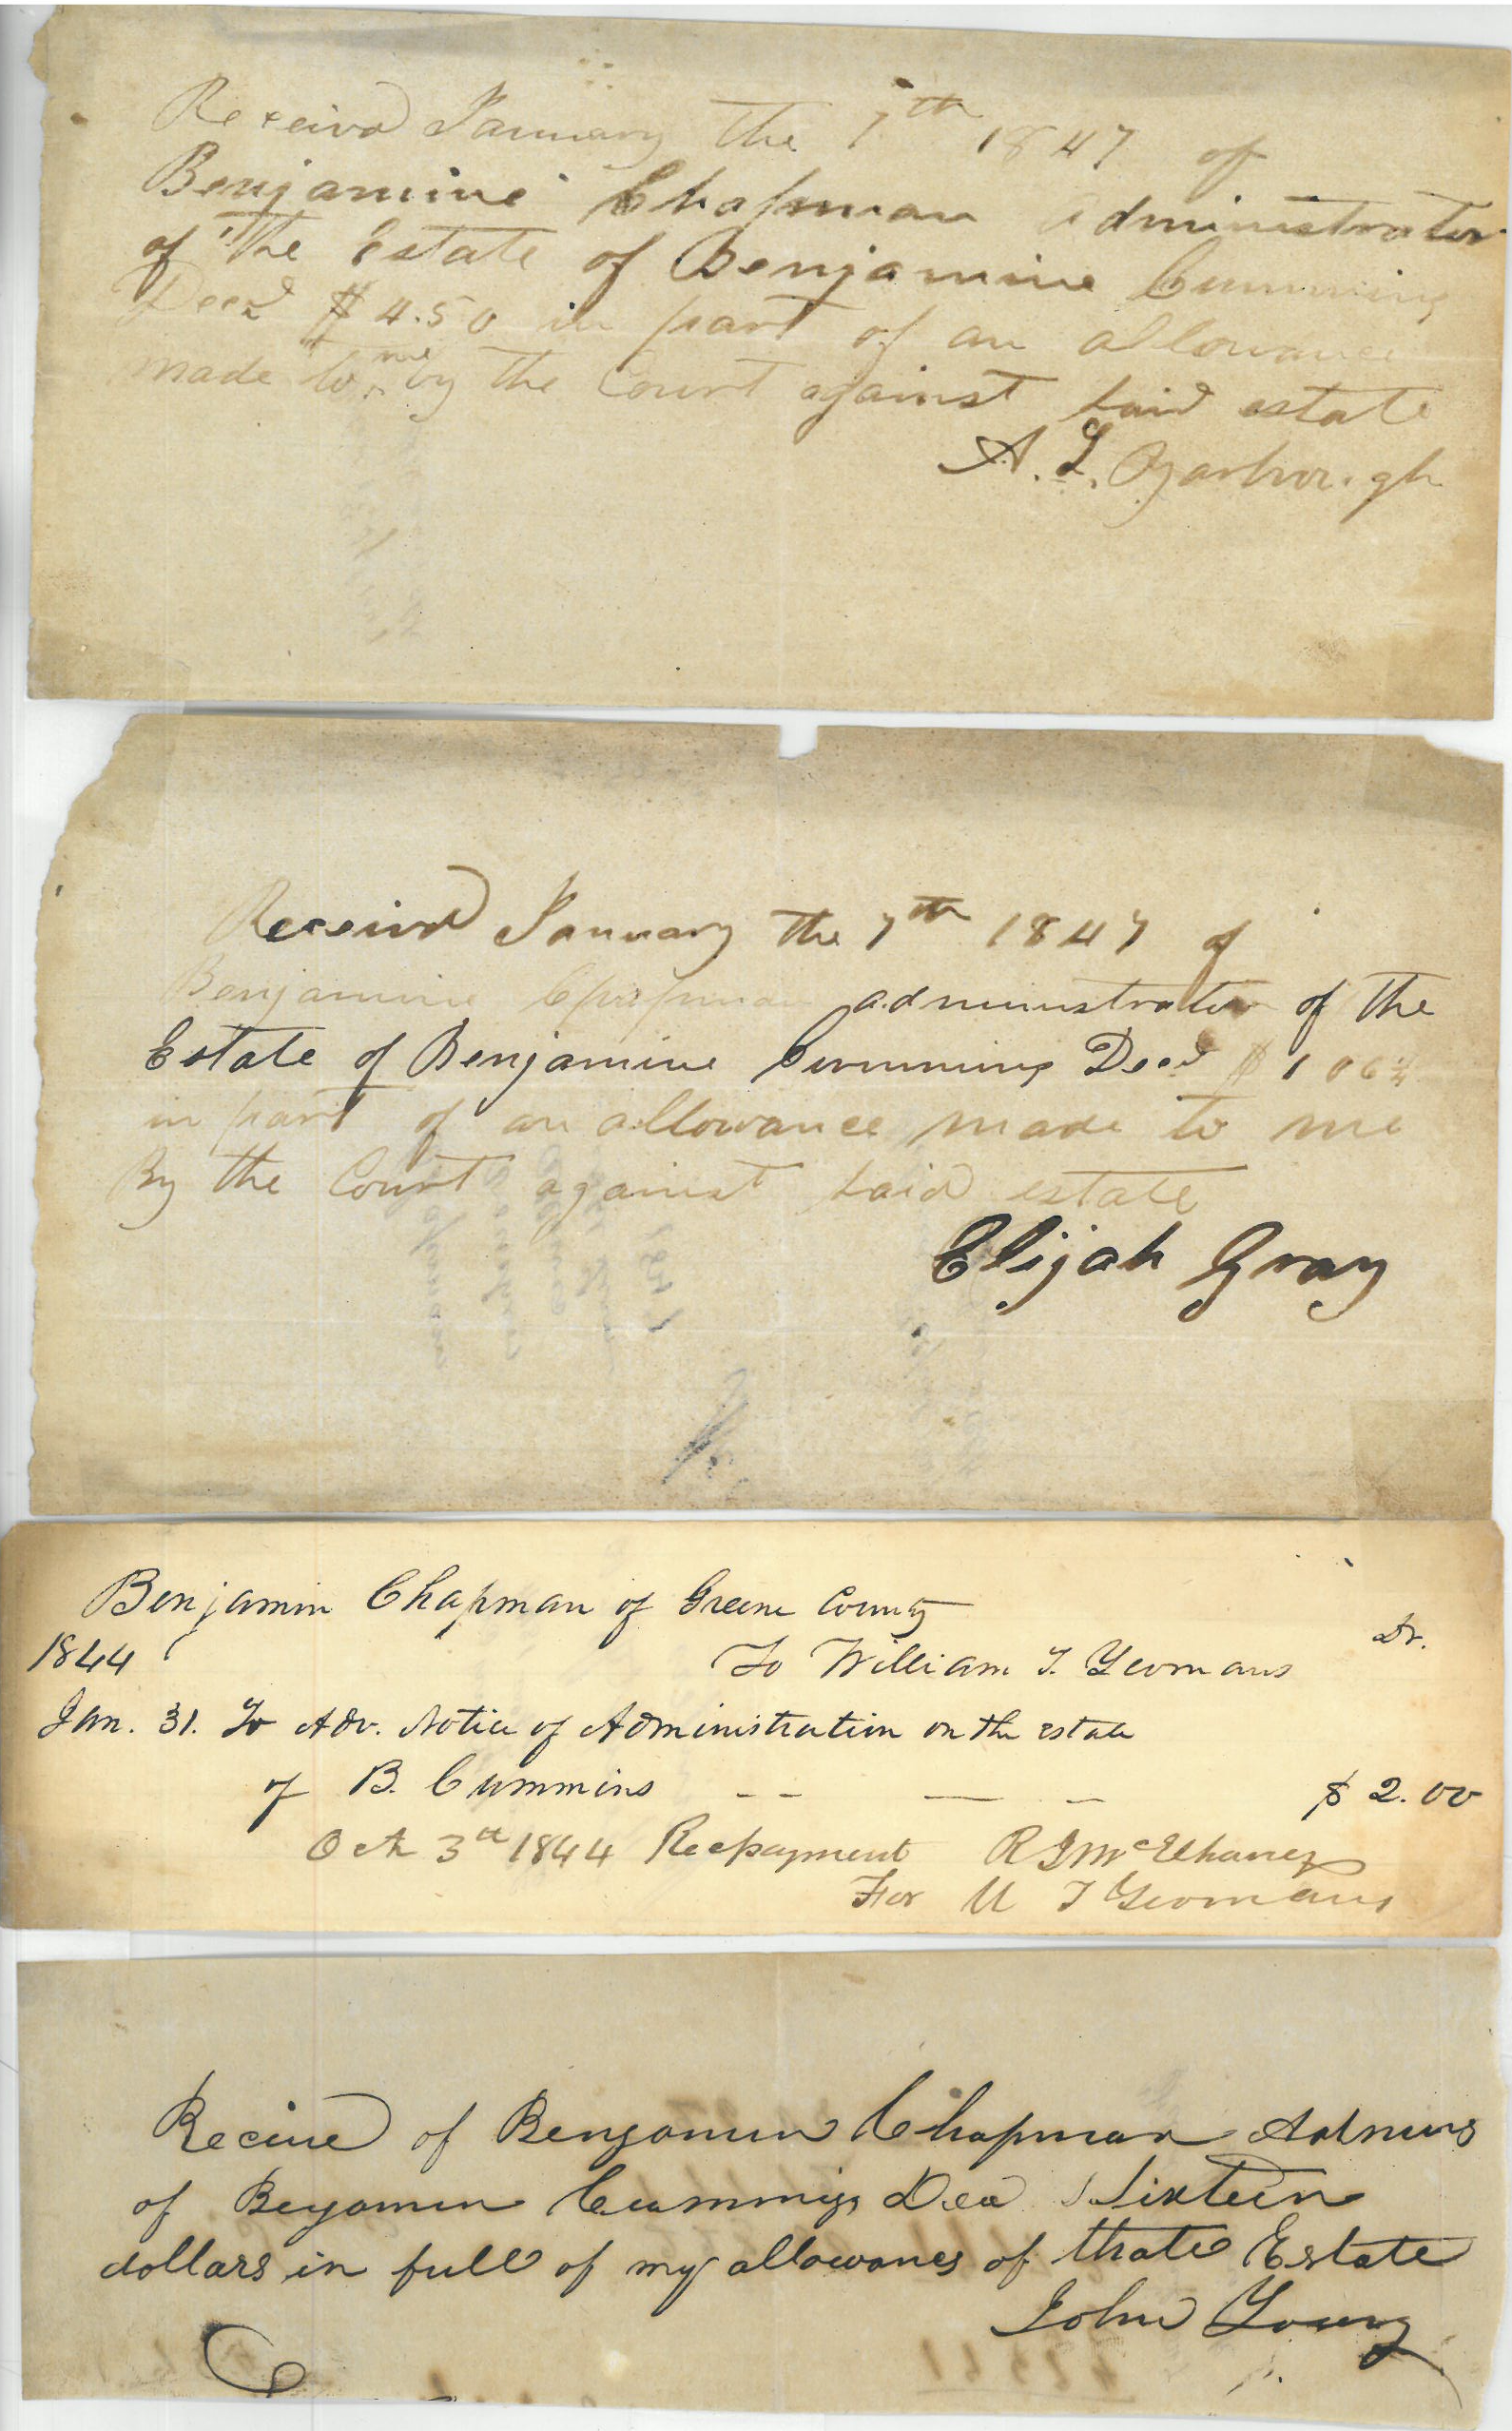 Received January the 7th 1847 of
Benjamine Chapman administrator
of the Estate of Benjamine Cumming
Decd $4.50 in part of an allowance
made to me by the Court against said estate
A. L. Yarborough
Received January the 7th 1847 of
Benjamine Chapman administrator of the
Estate of Benjamine Cumming Decd $1 06¼
in part of an allowance made to me
By the Court against said estate
Elijah Gray
Benjamin Chapman of Greene County
1844 To William T. Yeomans Dr.
Jan. 31. To Adv. Notice of Administration on the estate
of B. Cummins -- — - $ 2.00
Oct 3rd 1844 Recpayment R J McElhaney
For W T Yeomans
Receive of Benjamin Chapman Admins
of Benjamin Cummings Dea Sixteen
dollars in full of my allowances of thate Estate
John Young